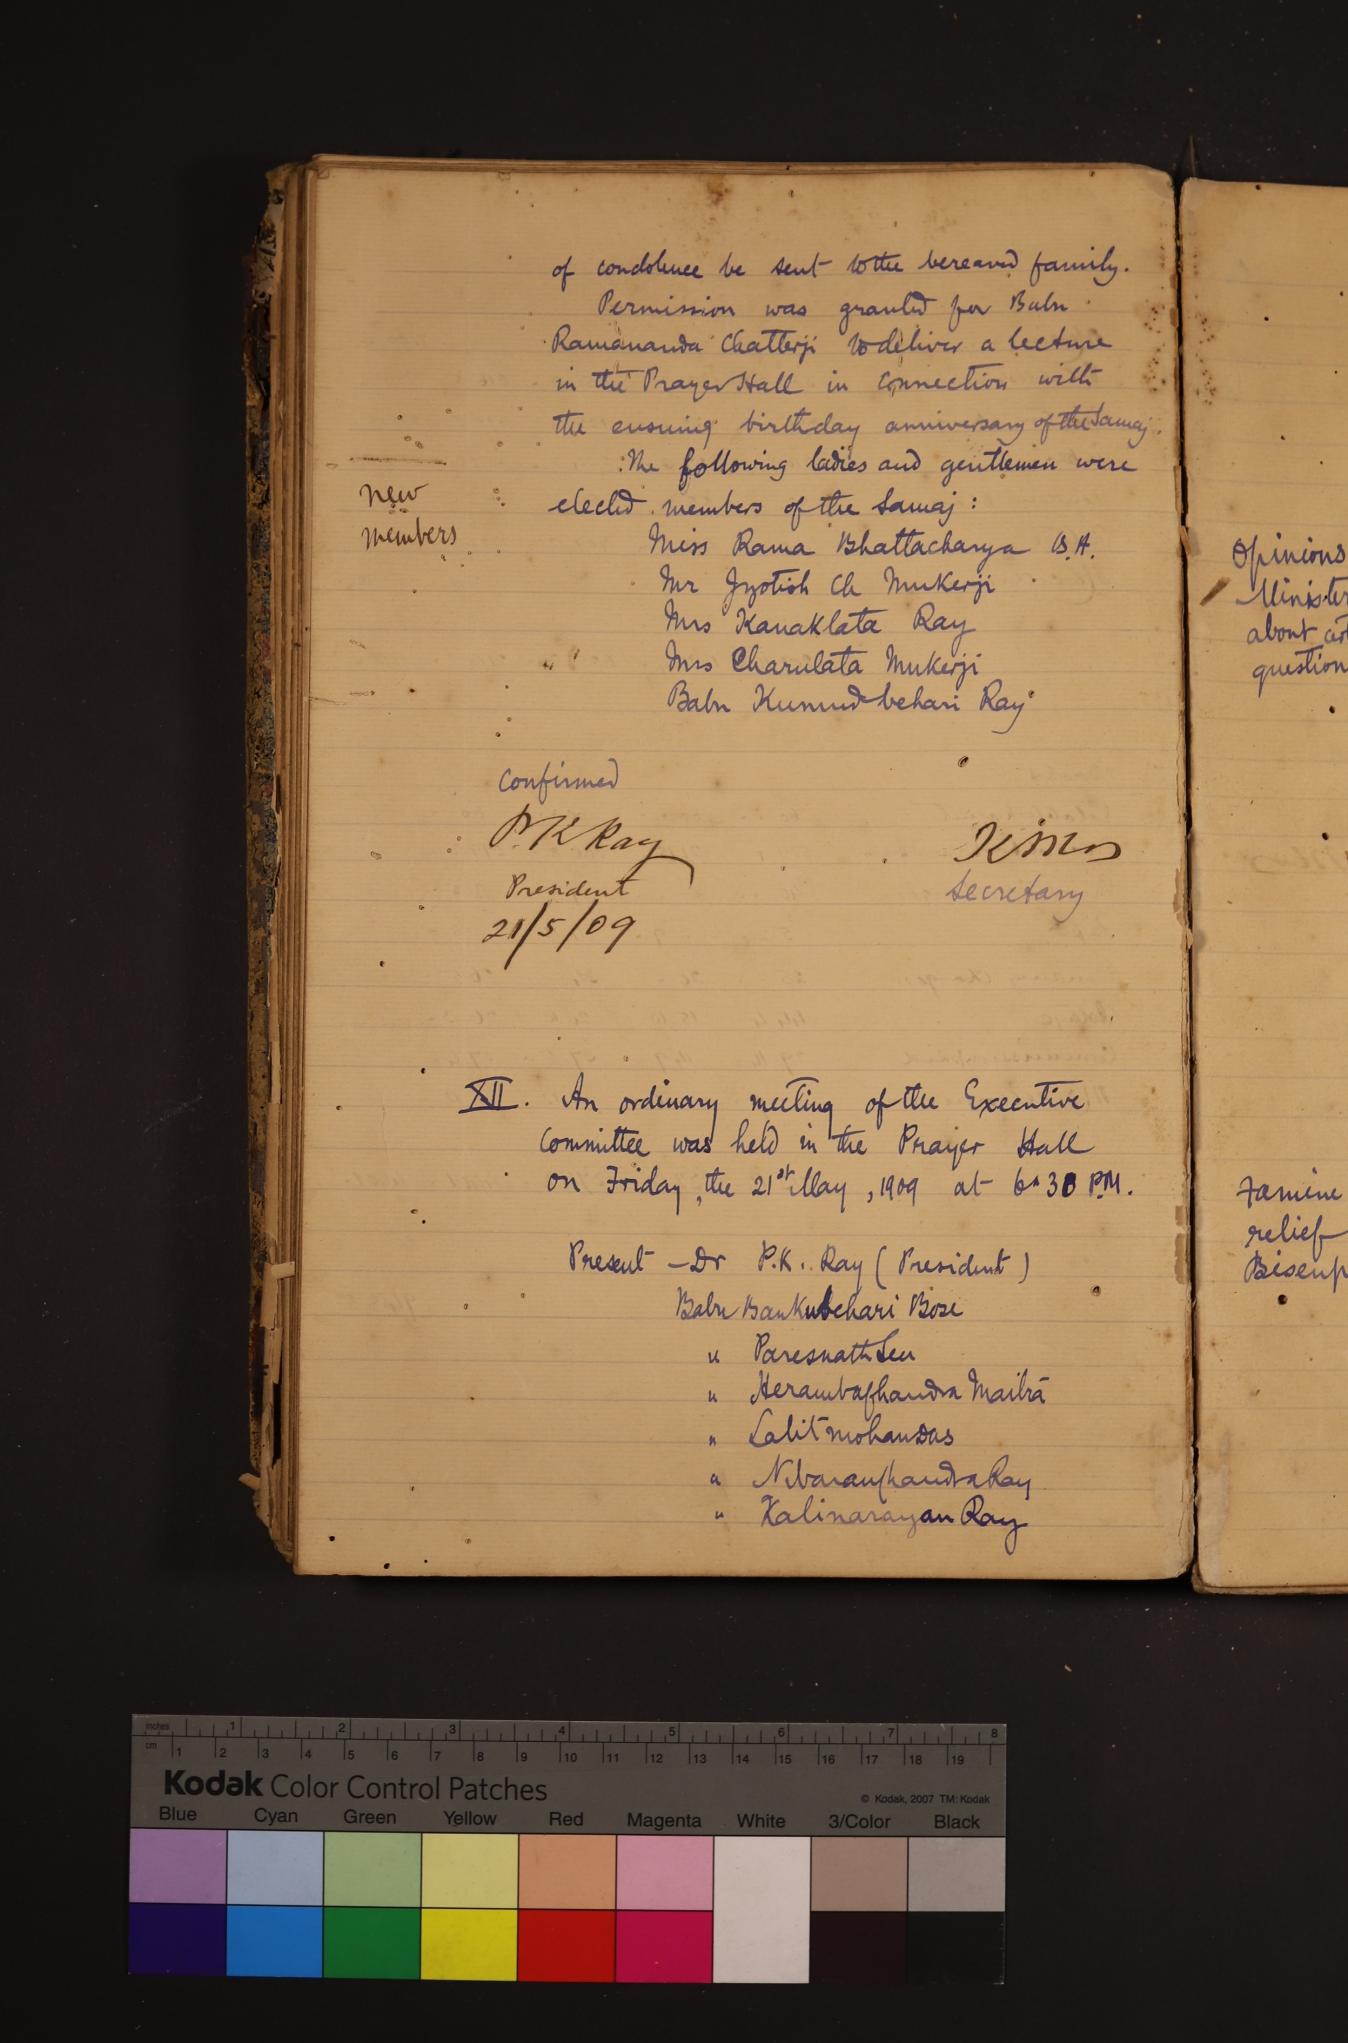 of condolence be sent to the bereaved family.
Permission was granted for Babu
Ramananda Chatterji to deliver a lecture
in the Prayer Hall in connection with
the ensuing birthday anniversary of the Samaj.
The following ladies and gentlemen were
elected members of the Samaj:
new
members
Miss Rama Bhattacharya B.A.
Mr Jyotish Ch Mukerji
Mrs Kanaklata Ray
Mrs Charulata Mukerji
Babu Kumud behari Ray
Confirmed
P.K Ray
President
Secretary
21/5/09
XII. An ordinary meeting of the Executive
Committee was held in the Prayer Hall
on Friday, the 21st May, 1909 at 6.30 P.M.
Present — Dr P.K. Ray (President)
Babu Bankubehari Bose
" Paresnath Sen
" Herambachandra Maitra
" Lalitmohan Das
" Nibaranchandra Ray
" Kalinarayan Ray
Opinions
Minister
about
question
Famine
relief
Bisenp
inches 1 2 3 4 5 6 7 8
cm 1 2 3 4 5 6 7 8 9 10 11 12 13 14 15 16 17 18 19
Kodak Color Control Patches
© Kodak, 2007 TM: Kodak
Blue Cyan Green Yellow Red Magenta White 3/Color Black